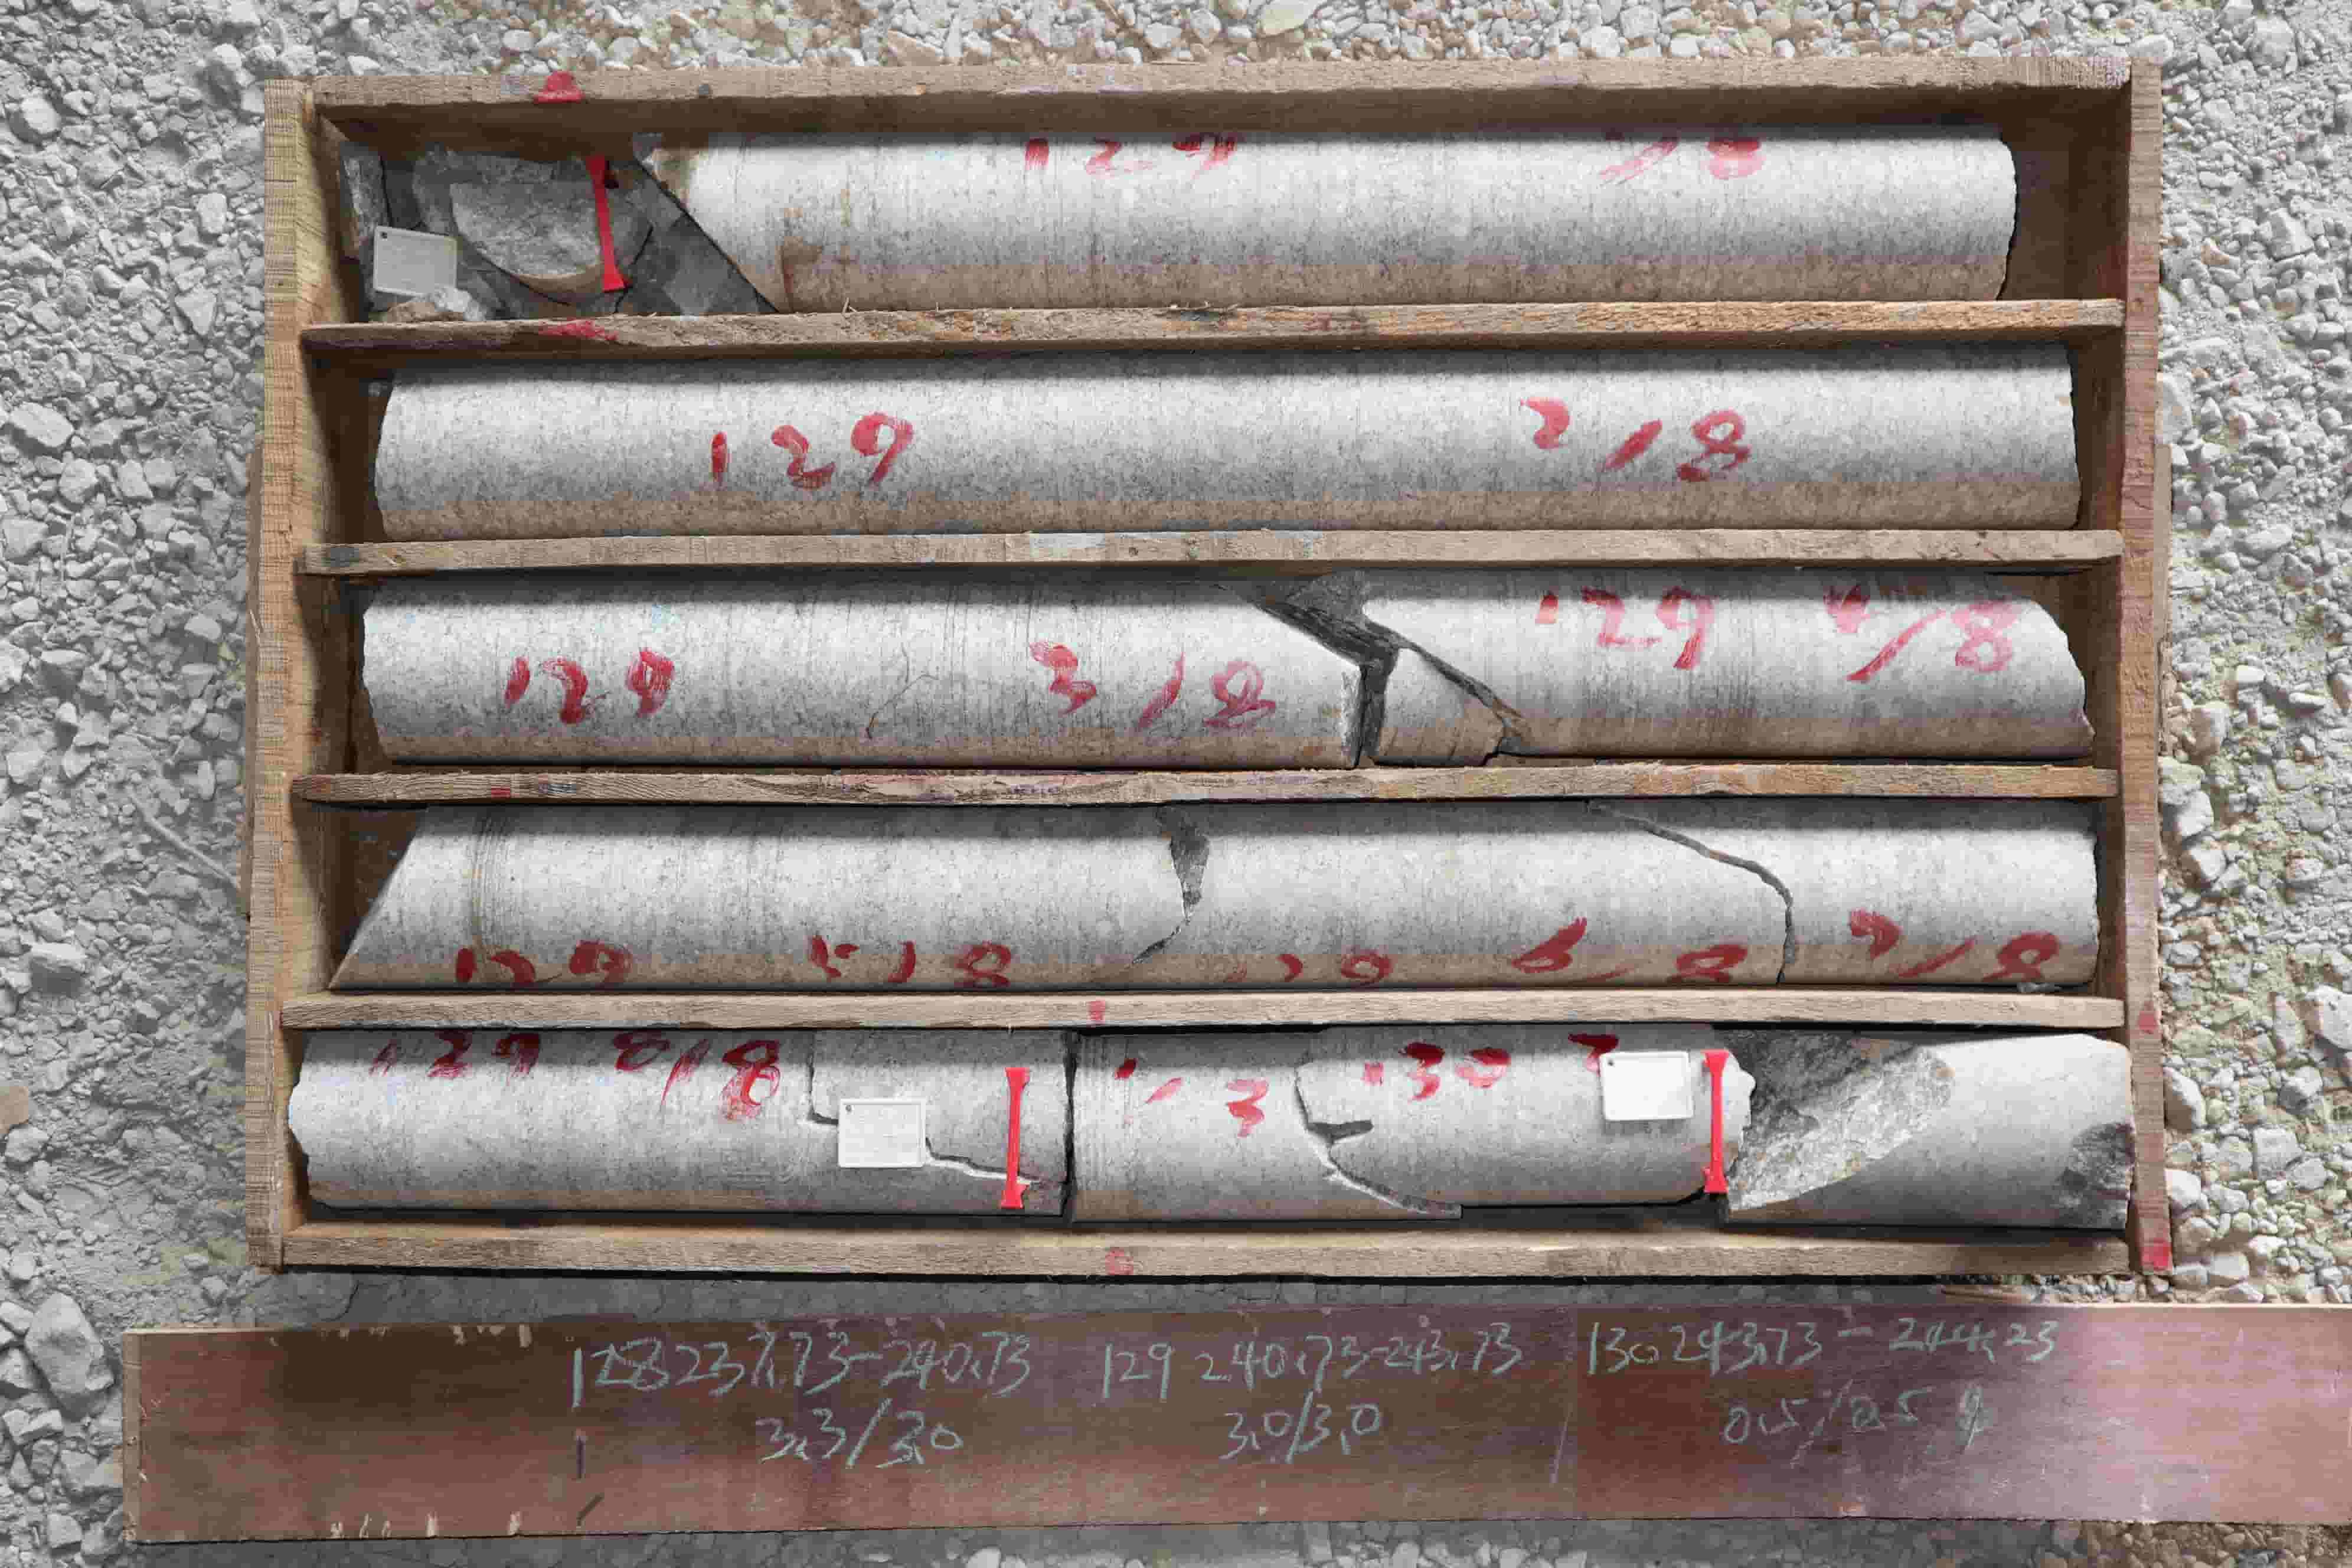 129 1/8
129 2/8
129 3/8 129 4/8
129 5/8 129 6/8 7/8
129 8/8 1/3 130
128 237.73-240.73 129 240.73-243.73 130 243.73-244.23
3.3/3.0 3.0/3.0 0.5/0.5